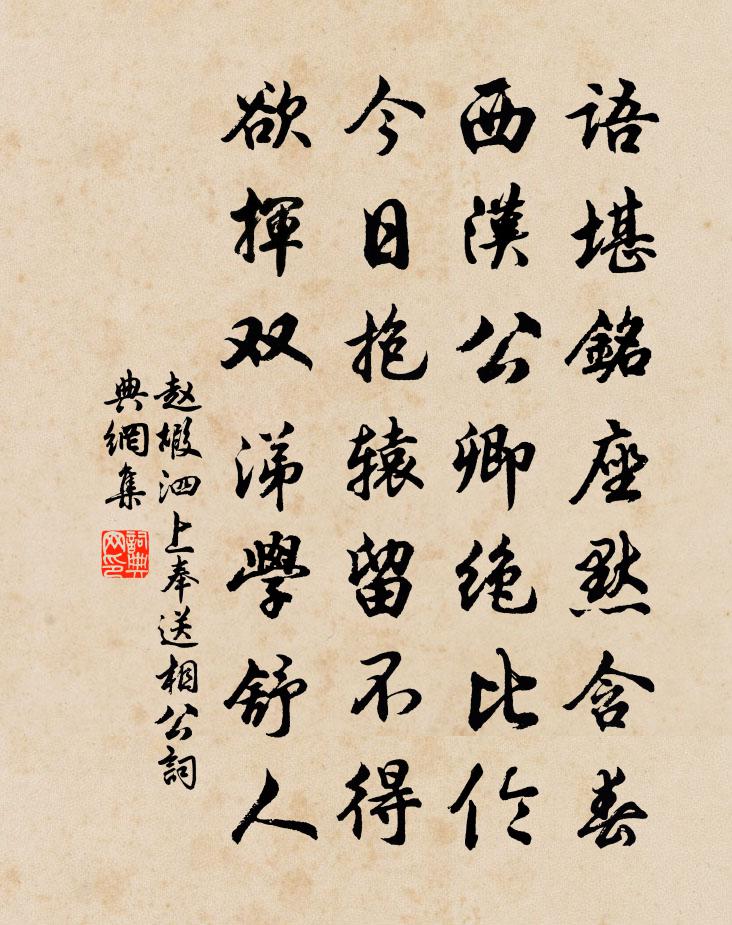 语堪銘座默含春
西漢公卿绝比伦
今日抱辕留不得
欲揮双涕學舒人
赵嘏泗上奉送相公詞
典網集
詞典
网印